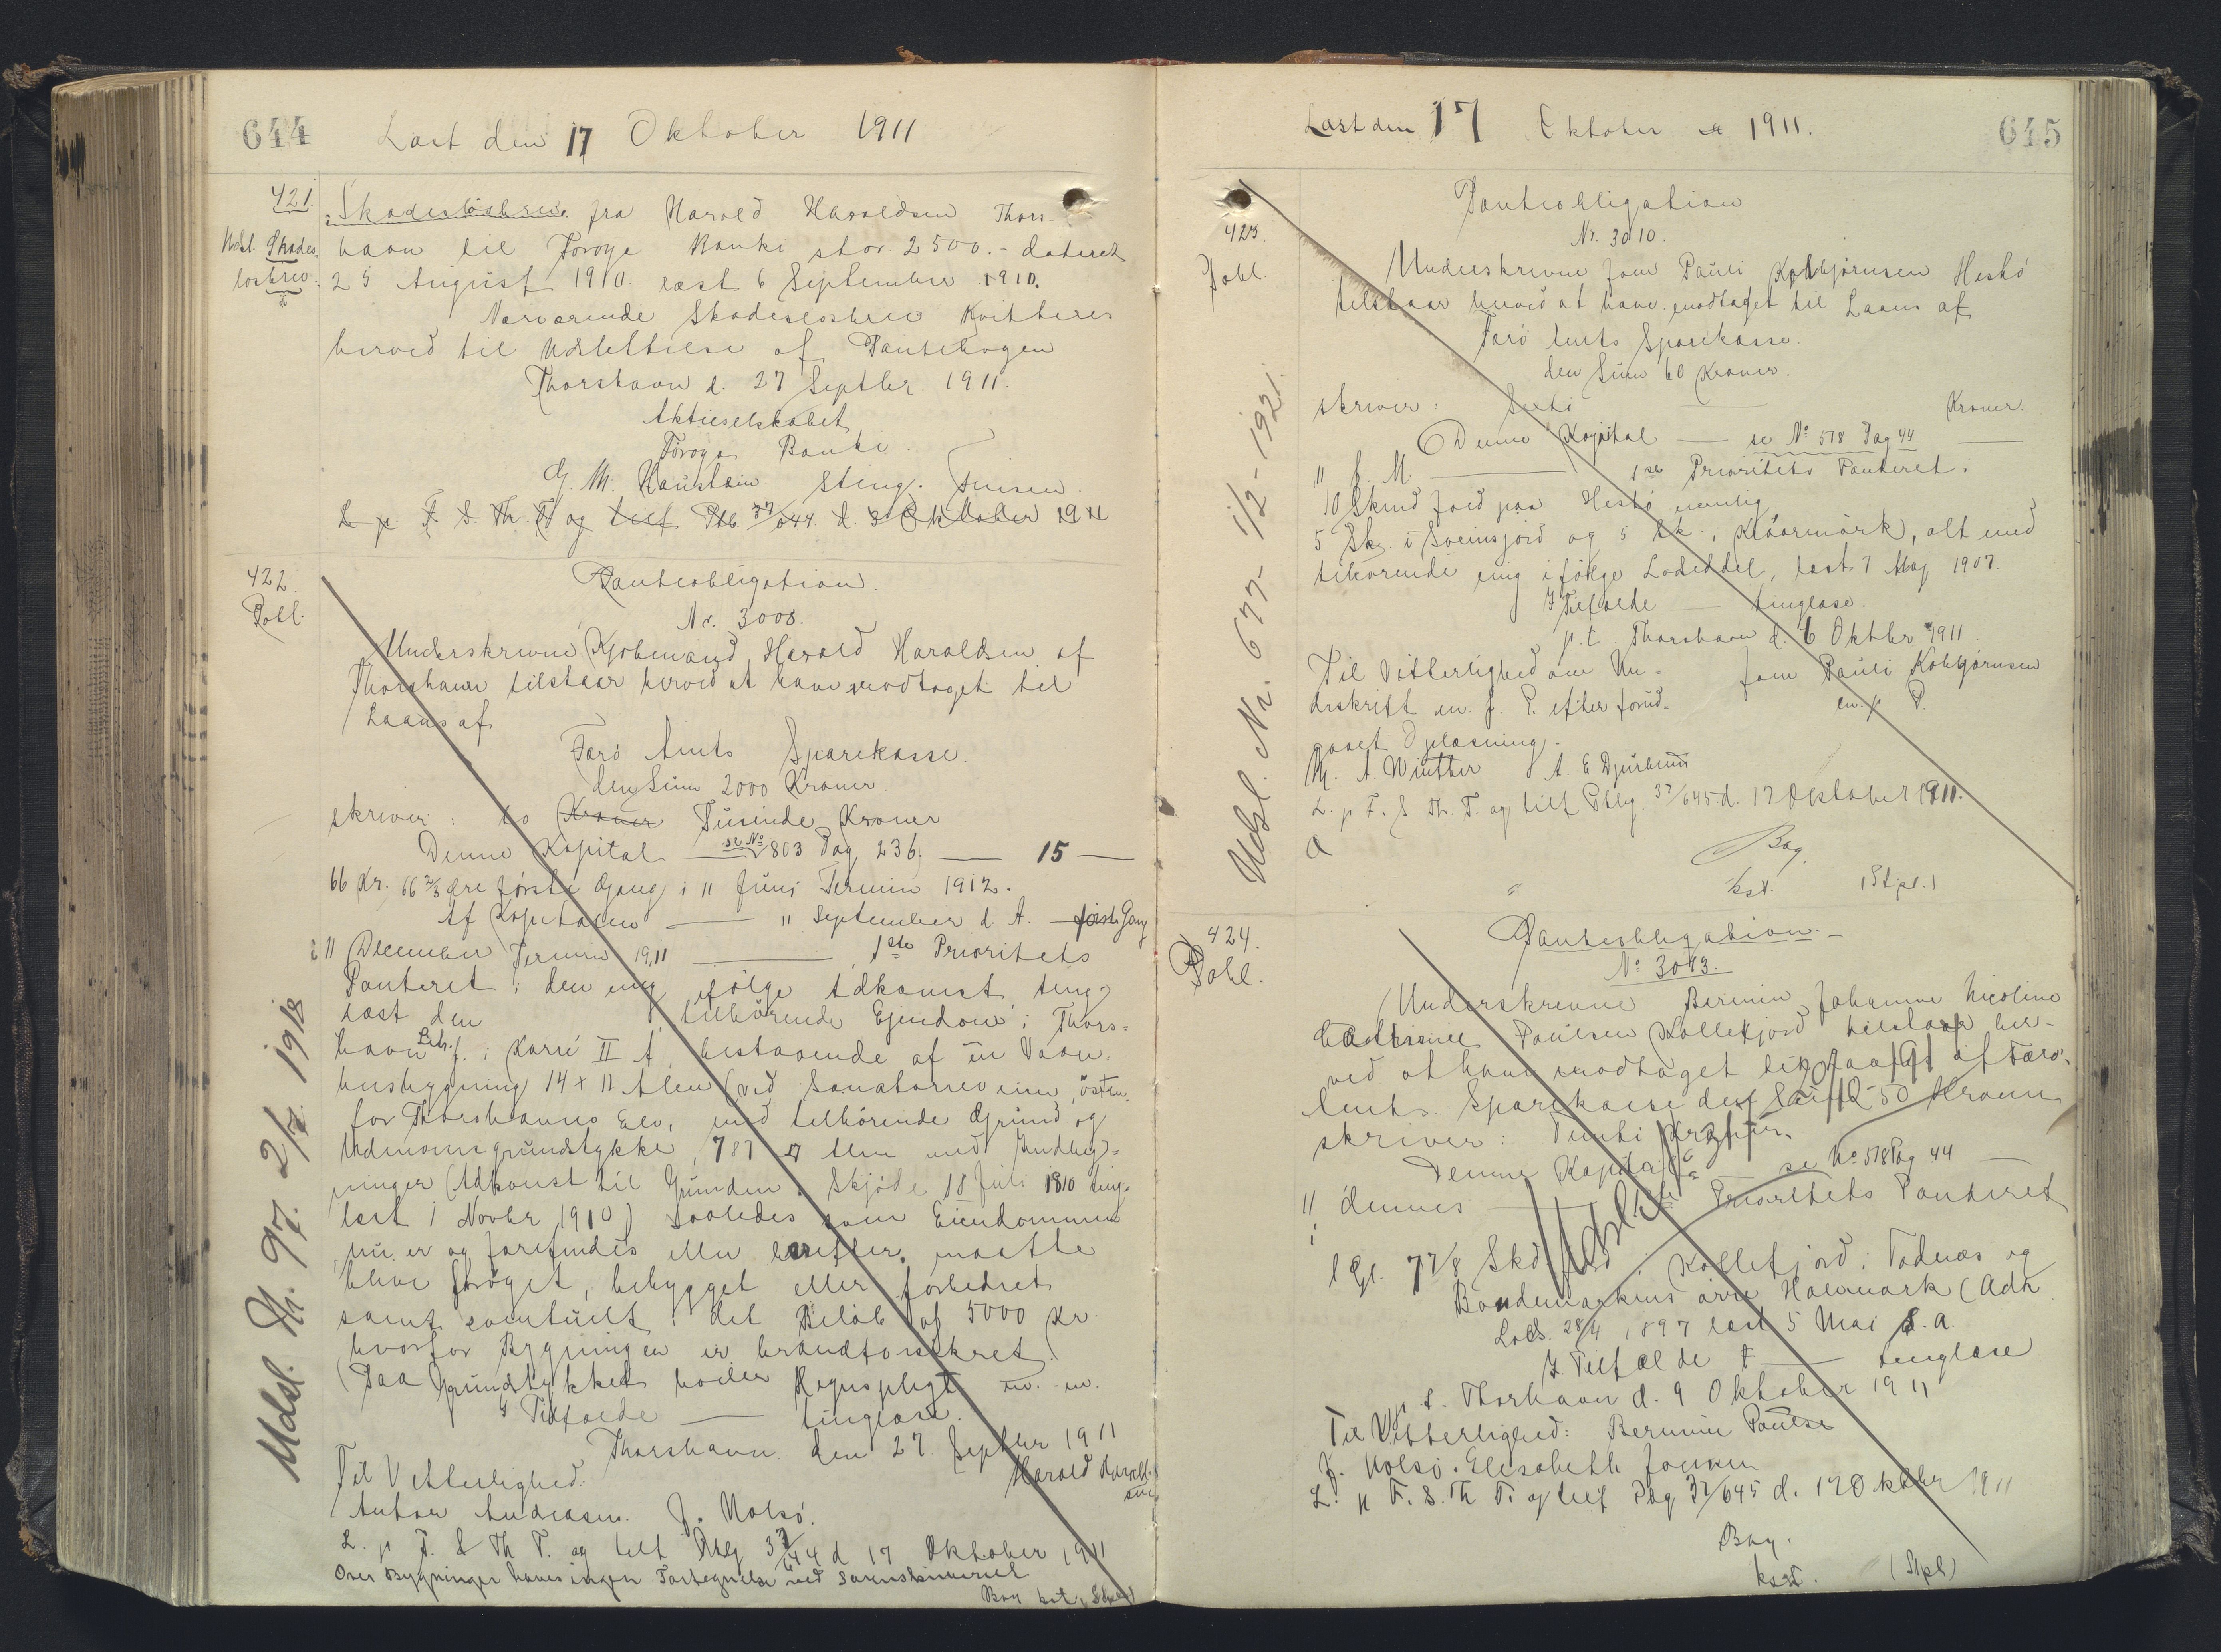 644
Læst den 17 Oktober 1911
421.
Udsl. Skades-
løsbrev.
Skadesløsbrev fra Harald Haraldsen Thors-
havn til Føroya Banki stor. 2500.- dateret
25 August 1910. læst 6 September 1910.
Nærværende Skadesløsbrev Kvitteres
herved til Udslettelse af Pantebogen
Thorshavn d. 27 Septbr. 1911.
Aktieselskabet
Føroya Banki
L p F S. Th. T og tilf Ptb. 37/644 d. 3 Oktober 1911
422.
Pobl.
Panteobligation.
Nr. 3008.
Underskrevne Kjøbmand Harald Haraldsen af
Thorshavn tilstaar herved at have modtaget til
Laans af
Færø Amts Sparekasse.
den Sum 2000 Kroner.
skriver: to Kroner Tusinde Kroner
Denne Kapital — se No 803 Pag 236. — 15 —
66 Kr. 66 2/3 Øre første Gang i 11 Juni Termin 1912.
Af Kapitalen — 11 September d. A. — første Gang
i 11 December Termin 1911 — 1ste Prioritets
Panteret i den mig ifølge Adkomst, ting-
læst den tilhørende Ejendom i Thors-
havn Litr. f. i Karré II A, bestaaende af en Vaan-
husbygning 14 x 11 Alen (ved Sanatorievejen, østen-
for Thorshavns Elv, med tilhørende Grund og
Udmarksgrundstykke, 787 □ Alen med Indheg-
ninger (Adkomst til Grunden: Skjøde 18 Juli 1810 ting-
læst 1 Novbr 1910) saaledes som Eiendommen
nu er og forefindes eller herefter maatte
blive forøget, bebygget eller forbedret
samt eventuelt i det Beløb af 5000 Kr.
hvorfor Bygningen er brandforsikret.
(Paa Grundstykket hviler Hegnspligt m. m.
I Tilfælde — tinglæse.
Thorshavn den 27 Septbr 1911
Til Vitterlighed.
Harald Harald-
sen
Anton Andreasen. J. Nolsø.
L. p F. S Th T. og tilf Pbg 37/644 d 17 Oktober 1911
Over Bygningen haves ingen Fortegnelse ved Sorenskriveriet
Bay kst. (Stpl)
Udsl. Nr. 97. 2/7. 1918
Læst den 17 Oktober 1911.
645
423.
Pobl.
Panteobligation
Nr. 3010.
Underskrevne Joen Pauli Kolbjørnsen Hestø
tilstaar herved at have modtaget til Laans af
Færø Amts Sparekasse.
den Sum 60 Kroner.
skriver: Seksti — Kroner.
Denne Kapital — se No 578 Pag 44 —
11 J. M. — 1ste Prioritets Panteret i
10 Skind Jord paa Hestø nemlig
5 Sk. i Sveinsjord og 5 Sk. i Kvåarmørk, alt med
tilhørende mig ifølge Lodseddel, læst 7 Maj 1907.
I Tilfælde — tinglæse.
p.t. Thorshavn d. 6 Oktbr 1911
Til Vitterlighed om Un-
derskrift m. f. P. efter forud-
gaaet Oplæsning.
Joen Pauli Kolbjørnsen
m. f. P.
M. A. Winther A. E Djurhuus
L. p F. S Th. T. og tilf Pbg. 37/645 d. 17 Oktober 1911.
Bay.
kst. (Stpl.)
Udsl. Nr. 677- 1/2- 1921.
424.
Pobl.
Panteobligation.
No 3013.
Underskrevne Bernine Johanne Nicoline
Poulsen Kollefjord tilstaar her-
ved at have modtaget til Laans af Færø
Amts Sparekasse den Sum 50 Kroner
skriver: Femti Kroner.
Denne Kapital — se No 578 Pag 44 —
11 dennes — Prioritets Panteret
i
1 Gl. 7 7/8 Skd Jord i Kollefjord, Todnæs og
Bøndemarkens øvre Havemark (Adk.
Lods. 28/4 1897 læst 5 Mai s.a.
I Tilfælde — tinglæse
p.t. Thorshavn d. 9 Oktober 1911
Til Vitterlighed: Bernine Poulse
J. Nolsø. Elisabeth Joensen
L. p F. S. Th T. og tilf Pag 37/645 d. 17 Oktbr 1911
Bay.
kst. (Stpl)